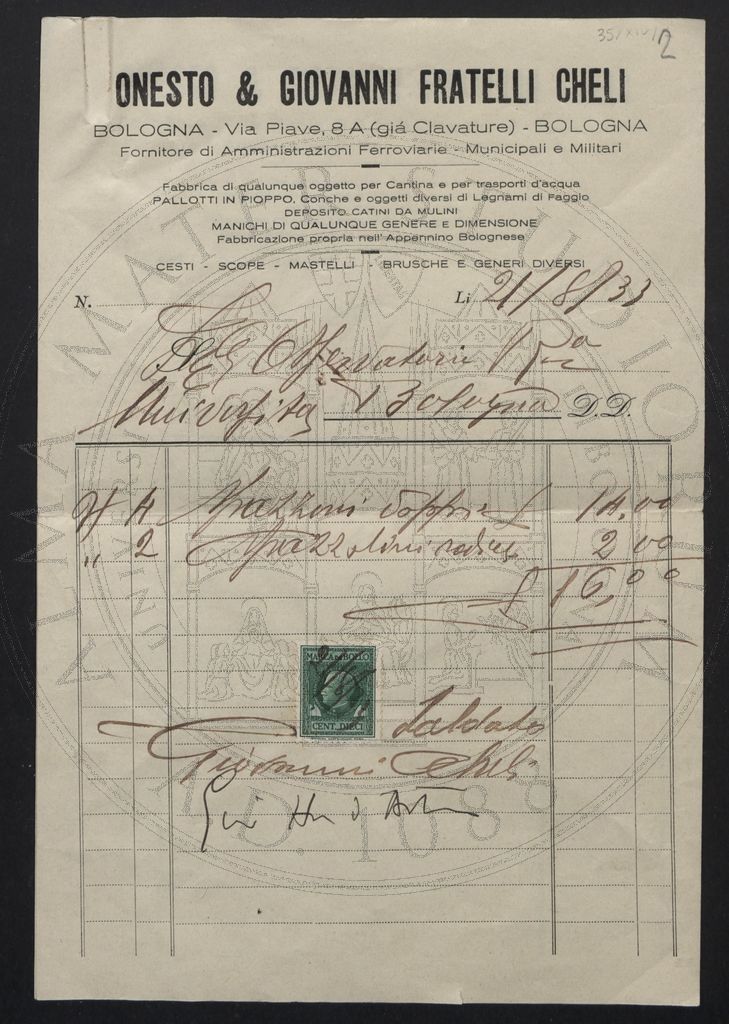 35/XIV/2
ONESTO & GIOVANNI FRATELLI CHELI
BOLOGNA - Via Piave, 8 A (giá Clavature) - BOLOGNA
Fornitore di Amministrazioni Ferroviarie - Municipali e Militari
Fabbrica di qualunque oggetto per Cantina e per trasporti d'acqua
PALLOTTI IN PIOPPO, Conche e oggetti diversi di Legnami di Faggio
DEPOSITO CATINI DA MULINI
MANICHI DI QUALUNQUE GENERE E DIMENSIONE
Fabbricazione propria nell' Appennino Bolognese
CESTI - SCOPE - MASTELLI - BRUSCHE E GENERI DIVERSI
N. Li 21/8/33
Osservatorio Ra
Università Bologna D.D.
N 4 Spazzoni doppie £ 14,00
" 2 Spazzolini radica 2 00
£ 16,00
MARCA DA BOLLO
CENT. DIECI
Saldato
Giovanni Cheli
ALMA MATER STUDIORUM
A.D. 1088